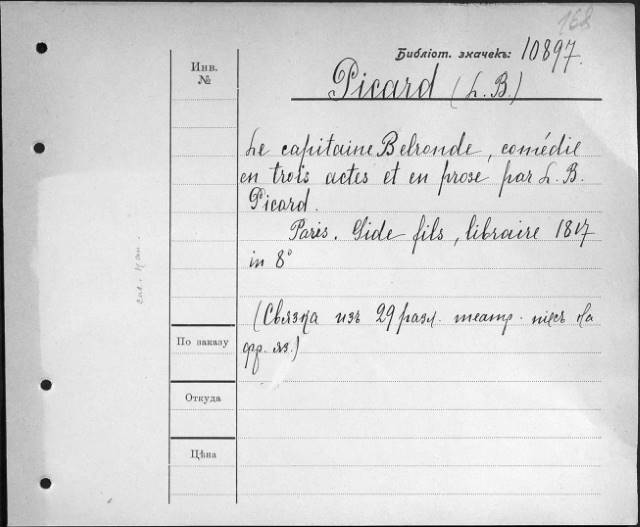 168
Библіот. значекъ: 10897.
Инв.
№
Picard (L. B.)
Le capitaine Belronde, comédie
en trois actes et en prose par L. B.
Picard.
Paris. Gide fils, libraire 1817
in 8°
(Связка изъ 29 разл. театр. піесъ на
фр. яз.)
По заказу
Откуда
Цѣна